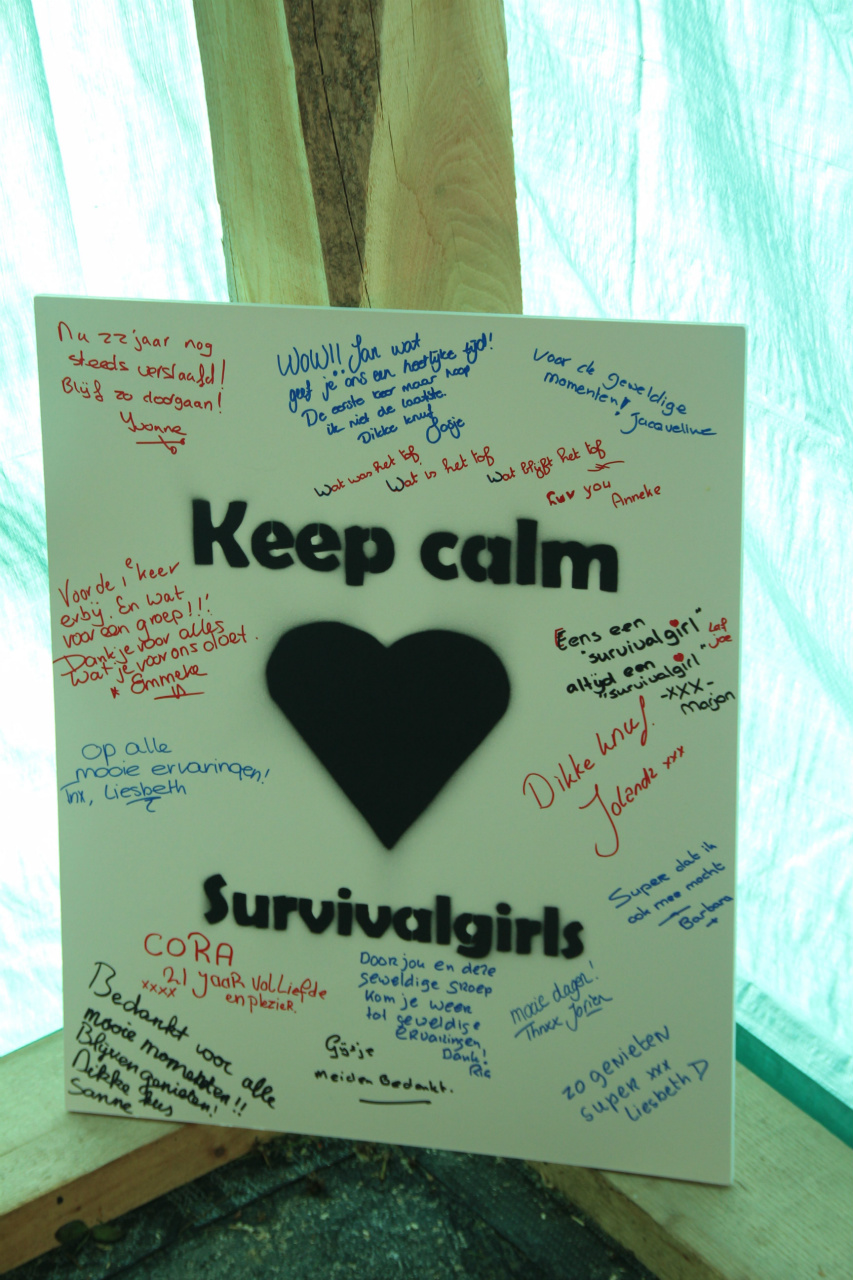 Nu 22 jaar nog
steeds verslaafd!
Blijf zo doorgaan!
Yvonne
WOW!! Jan wat
geef je ons een heerlijke tijd!
De eerste keer maar hoop
ik niet de laatste.
Dikke knuf
Josje
Voor de geweldige
momenten!
Jacqueline
Wat was het tof
Wat is het tof
Wat blijft het tof
Luv you
Anneke
Keep calm
Voor de 1e keer
erbij. En wat
voor een groep!!!
Dankje voor alles
wat je voor ons doet.
Emmeke
Eens een
"survivalgirl"
altijd een
"survivalgirl"
-XXX-
Marjon
Lef
joe
Op alle
mooie ervaringen!
Tnx, Liesbeth
Dikke knuf.
Jolanda xxx
Super dat ik
ook mee mocht
Barbara
Survivalgirls
CORA
21 jaar vol liefde
xxxx en plezier.
Bedankt voor alle
mooie momenten!!
Blijven genieten!
Dikke kus
Sanne
Door jou en deze
geweldige groep
kom je weer
tot geweldige
ervaringen.
Dank!
Ria
mooie dagen!
Thnxx Jorien
meiden Bedankt.
zo genieten
super xxx
Liesbeth D